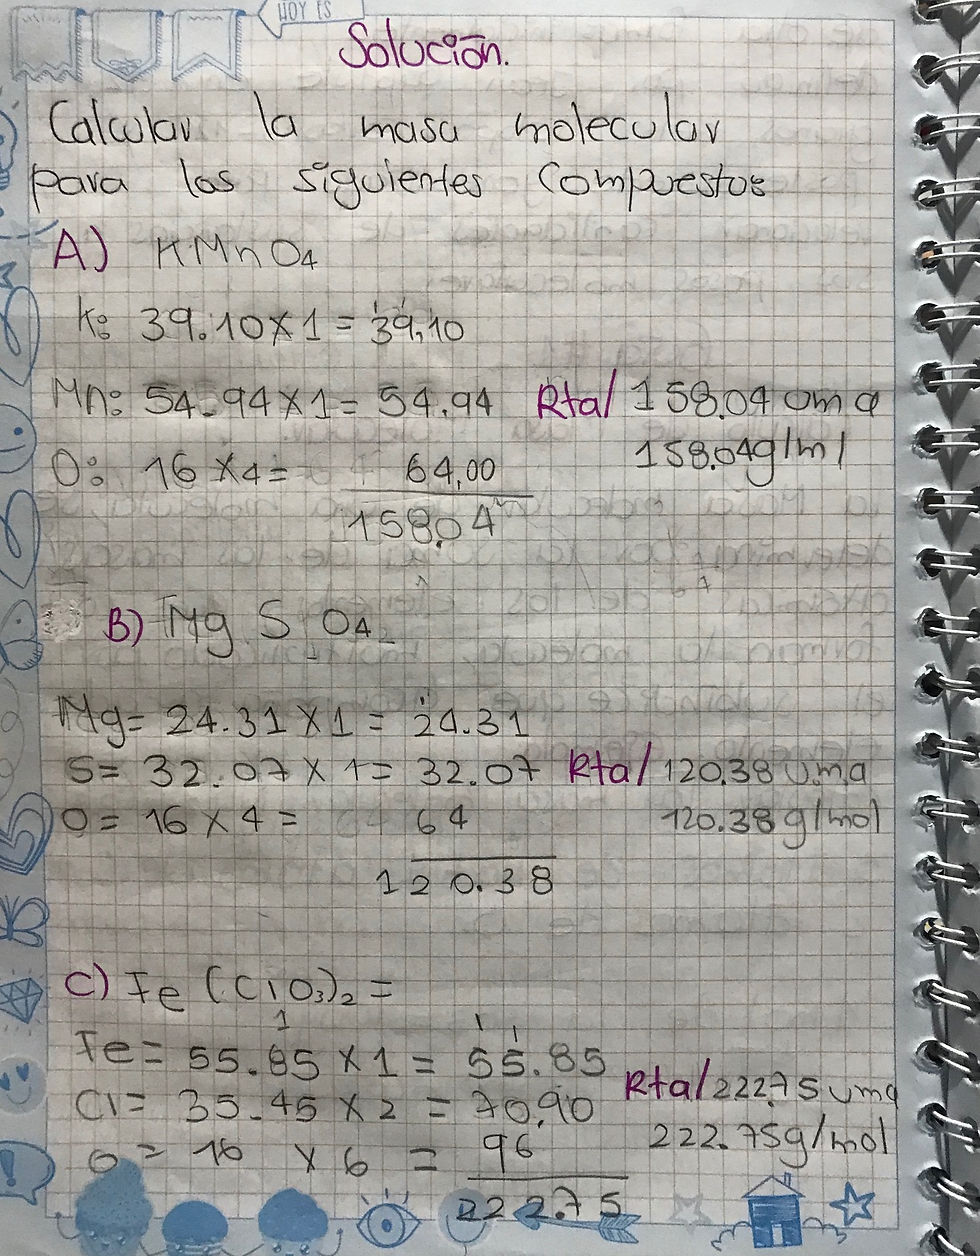 HOY ES
Solución.
Calcular la masa molecular
para los siguientes compuestos
A) KMnO₄
K: 39.10 x 1 = 39,10
Mn: 54.94 x 1 = 54.94 Rta/ 158.04 uma
O: 16 x 4 = 64,00 158.04g/ml
158.04
B) Mg S O₄
Mg = 24.31 x 1 = 24.31
S = 32.07 x 1 = 32.07 Rta/ 120.38 uma
O = 16 x 4 = 64 120.38 g/mol
120.38
C) Fe (ClO₃)₂ =
Fe = 55.85 x 1 = 55.85
Cl = 35.45 x 2 = 70,90 Rta/ 222.75 uma
O = 16 x 6 = 96 222.75g/mol
222.75